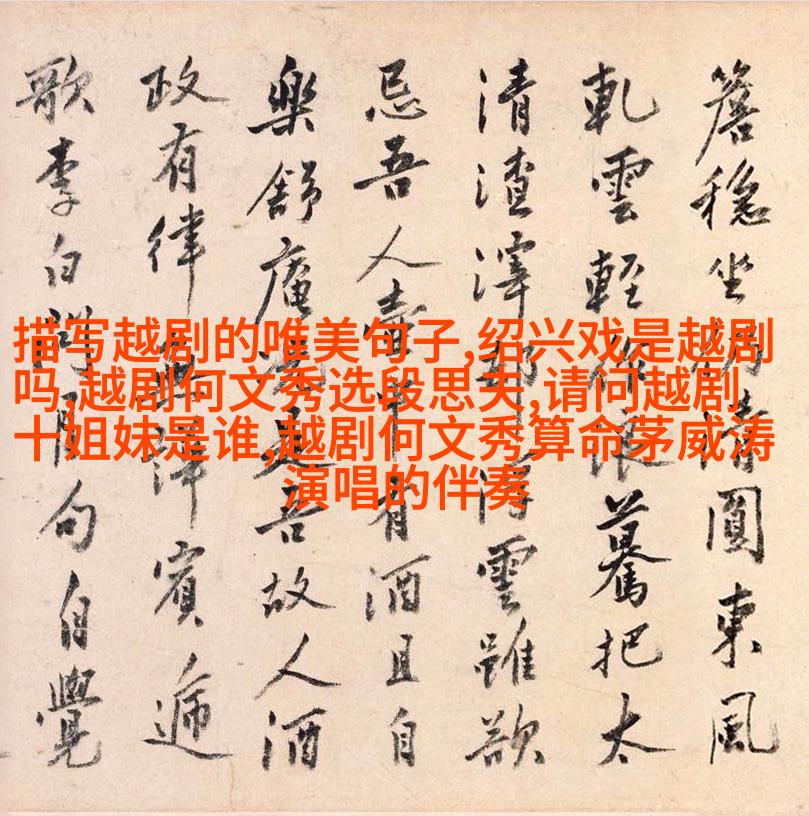 描写越剧的唯美句子,绍兴戏是越剧
吗,越剧何文秀选段思夫,请问越剧
十姐妹是谁,越剧何文秀算命茅威涛
演唱的伴奏
簷穩坐圓東風
軋雲輕驀把太
清渣滓雲雖欲
忌吾人壽有酒且自
樂舒庵是吾故人酒
政有律賓遞
歌李白句自覺